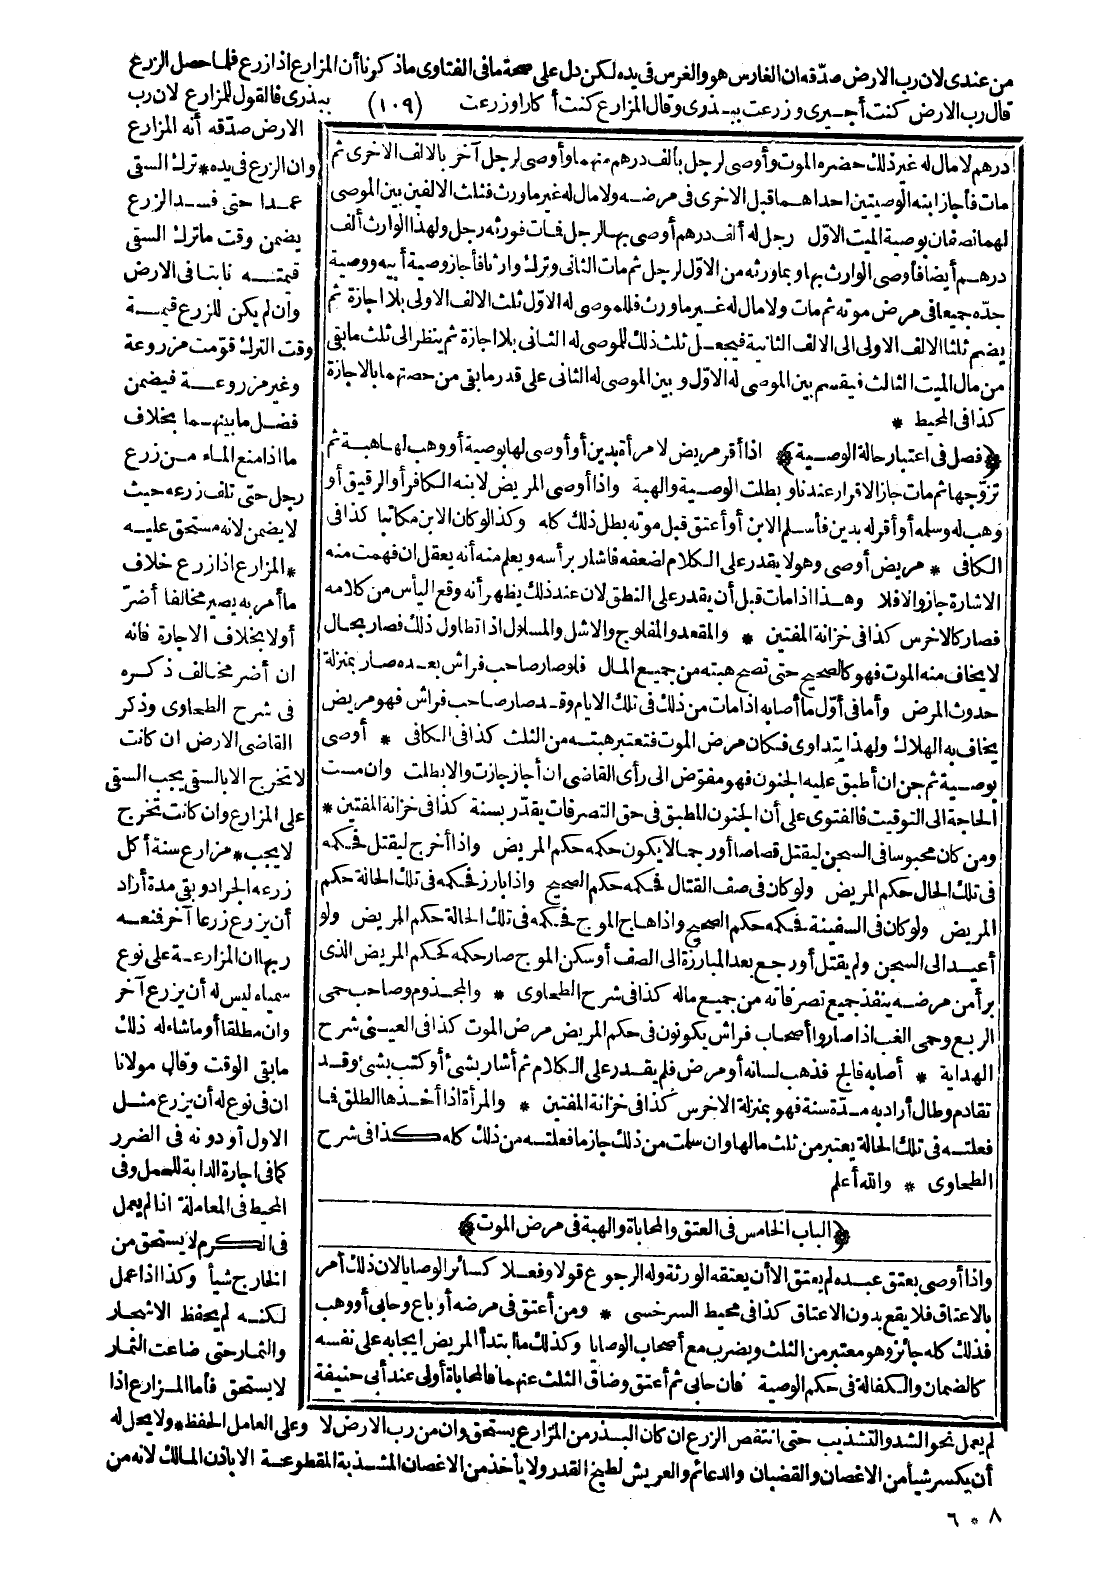 من عندى لان رب الارض صدّقه ان الغارس هو والغرس فى يده لكن دل على صحة ما فى الفتاوى ما ذكرنا أن المزارع اذا زرع فلما حصل الزرع
قال رب الارض كنت أجيرى وزرعت ببذرى وقال المزارع كنت أكارا وزرعت (١٠٩) ببذرى فالقول للمزارع لان رب
الارض صدّقه أنه المزارع
وان الزرع فى يده * ترك السقى
عمدا حتى فسد الزرع
يضمن وقت ما ترك السقى
قيمته نابتا فى الارض
وان لم يكن للزرع قيمة
وقت الترك قوّمت مزروعة
وغير مزروعة فيضمن
فضل ما بينهما بخلاف
ما اذا منع الماء من زرع
رجل حتى تلف زرعه حيث
لا يضمن لانه مستحق عليه
* المزارع اذا زرع خلاف
ما أمر به يصير مخالفا أضرّ
أولا بخلاف الاجارة فانه
ان أضر مخالف ذكره
فى شرح الطحاوى وذكر
القاضى الارض ان كانت
لا تخرج الا بالسقى يجب السقى
على المزارع وان كانت تخرج
لا يجب * مزارع سنة أكل
زرعه الجراد وبقى مدة أراد
أن يزرع زرعا آخر فمنعه
ربها ان المزارعة على نوع
سمياه ليس له أن يزرع آخر
وان مطلقا أو ما شاء له ذلك
ما بقى الوقت وقال مولانا
ان فى نوع له أن يزرع مثل
الاول أو دونه فى الضرر
كما فى اجارة الدابة للحمل وفى
المحيط فى المعاملة اذا لم يعمل
فى الكرم لا يستحق من
الخارج شيأ وكذا اذا عمل
لكنه لم يحفظ الاشجار
والثمار حتى ضاعت الثمار
لا يستحق فأما المزارع اذا
درهم لا مال له غير ذلك حضره الموت وأوصى لرجل بألف درهم منهما وأوصى لرجل آخر بالالف الاخرى ثم
مات فأجاز ابنه الوصيتين احداهما قبل الاخرى فى مرضه ولا مال له غير ما ورث فثلث الالفين بين الموصى
لهما نصفان بوصية الميت الاوّل رجل له ألف درهم أوصى بها لرجل فمات فورثه رجل ولهذا الوارث ألف
درهم أيضا فأوصى الوارث بها وبما ورثه من الاوّل لرجل ثم مات الثانى وترك وارثا فأجاز وصية أبيه ووصية
جدّه جميعا فى مرض موته ثم مات ولا مال له غير ما ورث فللموصى له الاوّل ثلث الالف الاولى بلا اجازة ثم
يضم ثلثا الالف الاولى الى الالف الثانية فيجعل ثلث ذلك للموصى له الثانى بلا اجازة ثم ينظر الى ثلث ما بقى
من مال الميت الثالث فيقسم بين الموصى له الاوّل وبين الموصى له الثانى على قدر ما بقى من حصتهما بالاجازة
كذا فى المحيط *
﴿فصل فى اعتبار حالة الوصية﴾ اذا أقر مريض لامرأة بدين أو أوصى لها بوصية أو وهب لها هبة ثم
تزوّجها ثم مات جاز الاقرار عندنا وبطلت الوصية والهبة واذا أوصى المريض لابنه الكافر أو الرقيق أو
وهب له وسلمه أو أقر له بدين فأسلم الابن أو أعتق قبل موته بطل ذلك كله وكذا لو كان الابن مكاتبا كذا فى
الكافى * مريض أوصى وهو لا يقدر على الكلام لضعفه فاشار برأسه ويعلم منه أنه يعقل ان فهمت منه
الاشارة جاز والا فلا وهذا اذا مات قبل أن يقدر على النطق لان عند ذلك يظهر أنه وقع اليأس من كلامه
فصار كالاخرس كذا فى خزانة المفتين * والمقعد والمفلوج والاشل والمسلول اذا تطاول ذلك فصار بحال
لا يخاف منه الموت فهو كالصحيح حتى تصح هبته من جميع المال فلو صار صاحب فراش بعده صار بمنزلة
حدوث المرض وأما فى أوّل ما أصابه اذا مات من ذلك فى تلك الايام وقد صار صاحب فراش فهو مريض
يخاف به الهلاك ولهذا يتداوى فكان مرض الموت فتعتبر هبته من الثلث كذا فى الكافى * أوصى
بوصية ثم جن ان أطبق عليه الجنون فهو مفوّض الى رأى القاضى ان أجاز جازت والا بطلت وان مست
الحاجة الى التوقيت فالفتوى على أن الجنون المطبق فى حق التصرفات يقدّر بسنة كذا فى خزانة المفتين *
ومن كان محبوسا فى السجن ليقتل قصاصا أو رجما لا يكون حكمه حكم المريض واذا أخرج ليقتل فحكمه
فى تلك الحال حكم المريض ولو كان فى صف القتال فحكمه حكم الصحيح واذا بارز فحكمه فى تلك الحالة حكم
المريض ولو كان فى السفينة فحكمه حكم الصحيح واذا هاج الموج فحكمه فى تلك الحالة حكم المريض ولو
أعيد الى السجن ولم يقتل أو رجع بعد المبارزة الى الصف أو سكن الموج صار حكمه كحكم المريض الذى
برأ من مرضه ينفذ جميع تصرفاته من جميع ماله كذا فى شرح الطحاوى * والمجذوم وصاحب حمى
الربع وحمى الغب اذا صاروا أصحاب فراش يكونون فى حكم المريض مرض الموت كذا فى العينى شرح
الهداية * أصابه فالج فذهب لسانه أو مرض فلم يقدر على الكلام ثم أشار بشئ أو كتب بشئ وقد
تقادم وطال أراد به مدّة سنة فهو بمنزلة الاخرس كذا فى خزانة المفتين * والمرأة اذا أخذها الطلق فما
فعلته فى تلك الحالة يعتبر من ثلث مالها وان سلمت من ذلك جاز ما فعلته من ذلك كله كذا فى شرح
الطحاوى * والله أعلم
﴿الباب الخامس فى العتق والمحاباة والهبة فى مرض الموت﴾
واذا أوصى بعتق عبده لم يعتق الا أن يعتقه الورثة وله الرجوع قولا وفعلا كسائر الوصايا لان ذلك أمر
بالاعتاق فلا يقع بدون الاعتاق كذا فى محيط السرخسى * ومن أعتق فى مرضه أو باع وحابى أو وهب
فذلك كله جائز وهو معتبر من الثلث ويضرب مع أصحاب الوصايا وكذلك ما ابتدأ المريض ايجابه على نفسه
كالضمان والكفالة فى حكم الوصية فان حابى ثم أعتق وضاق الثلث عنهما فالمحاباة أولى عند أبى حنيفة
لم يعمل نحو الشد والتشذيب حتى انتقص الزرع ان كان البذر من المزارع يستحق وان من رب الارض لا وعلى العامل الحفظ * ولا يحل له
أن يكسر شيأ من الاغصان والقضبان والدعائم والعريش لطبخ القدر ولا يأخذ من الاغصان المشذبة المقطوعة الا باذن المالك لانه من
٦٠٨